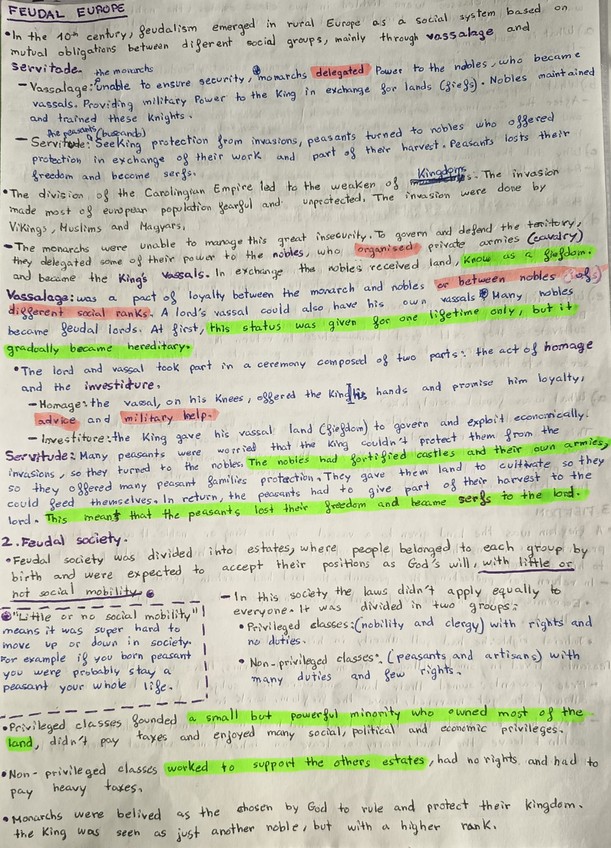 FEUDAL EUROPE
•In the 10th century, feudalism emerged in rural Europe as a social system based on
mutual obligations between diferent social groups, mainly through vassalage and
servitude.
the monarchs
– Vassalage: Unable to ensure security, monarchs delegated Power to the nobles, who became
vassals. Providing military Power to the King in exchange for lands (fiefs). Nobles maintained
and trained these Knights.
the peasants (husbands)
– Servitude: Seeking protection from invasions, peasants turned to nobles who offered
protection in exchange of their work and part of their harvest. Peasants losts their
freedom and become serfs.
•The division of the Carolingian Empire led to the weaken of Kingdoms. The invasion
made most of european population fearful and unprotected. The invasion were done by
Vikings, Muslims and Magyars.
– The monarchs were unable to manage this great insecurity. To govern and defend the territory,
they delegated some of their power to the nobles, who organised private armies (cavalry)
and became the King's Vassals. In exchange the nobles received land, Know as a fiefdom.
Vassalage: was a pact of loyalty between the monarch and nobles or between nobles (of)
different social ranks. A lord's vassal could also have his own vassals Many nobles
became feudal lords. At first, this status was given for one lifetime only, but it
gradually became hereditary.
•The lord and vassal took part in a ceremony composed of two parts: the act of homage
and the investiture.
– Homage: the vassal, on his Knees, offered the King his hands and promise him loyalty,
advice and military help.
– Investiture: the King gave his vassal land (fiefdom) to govern and exploit economically.
Servitude: Many peasants were worried that the King couldn't protect them from the
invasions, so they turned to the nobles. The nobles had fortified castles and their own armies,
so they offered many peasant families protection. They gave them land to cultivate so they
could feed themselves. In return, the peasants had to give part of their harvest to the
lord. This meant that the peasants lost their freedom and became serfs to the lord.
2. Feudal society.
•Feudal society was divided into estates, where people belonged to each group by
birth and were expected to accept their positions as God's will, with little or
not social mobility.
"Little or no social mobility"
means it was super hard to
move up or down in society.
For example if you born peasant
you were probably stay a
peasant your whole life.
– In this society the laws didn't apply equally to
everyone. It was divided in two groups:
• Privileged classes: (nobility and clergy) with rights and
no duties.
• Non-privileged classes: (peasants and artisans) with
many duties and few rights.
•Privileged classes founded a small but powerful minority who owned most of the
land, didn't pay taxes and enjoyed many social, political and economic privileges.
•Non-privileged classes worked to support the others estates, had no rights and had to
pay heavy taxes.
• Monarchs were belived as the chosen by God to rule and protect their kingdom.
the King was seen as just another noble, but with a higher rank.